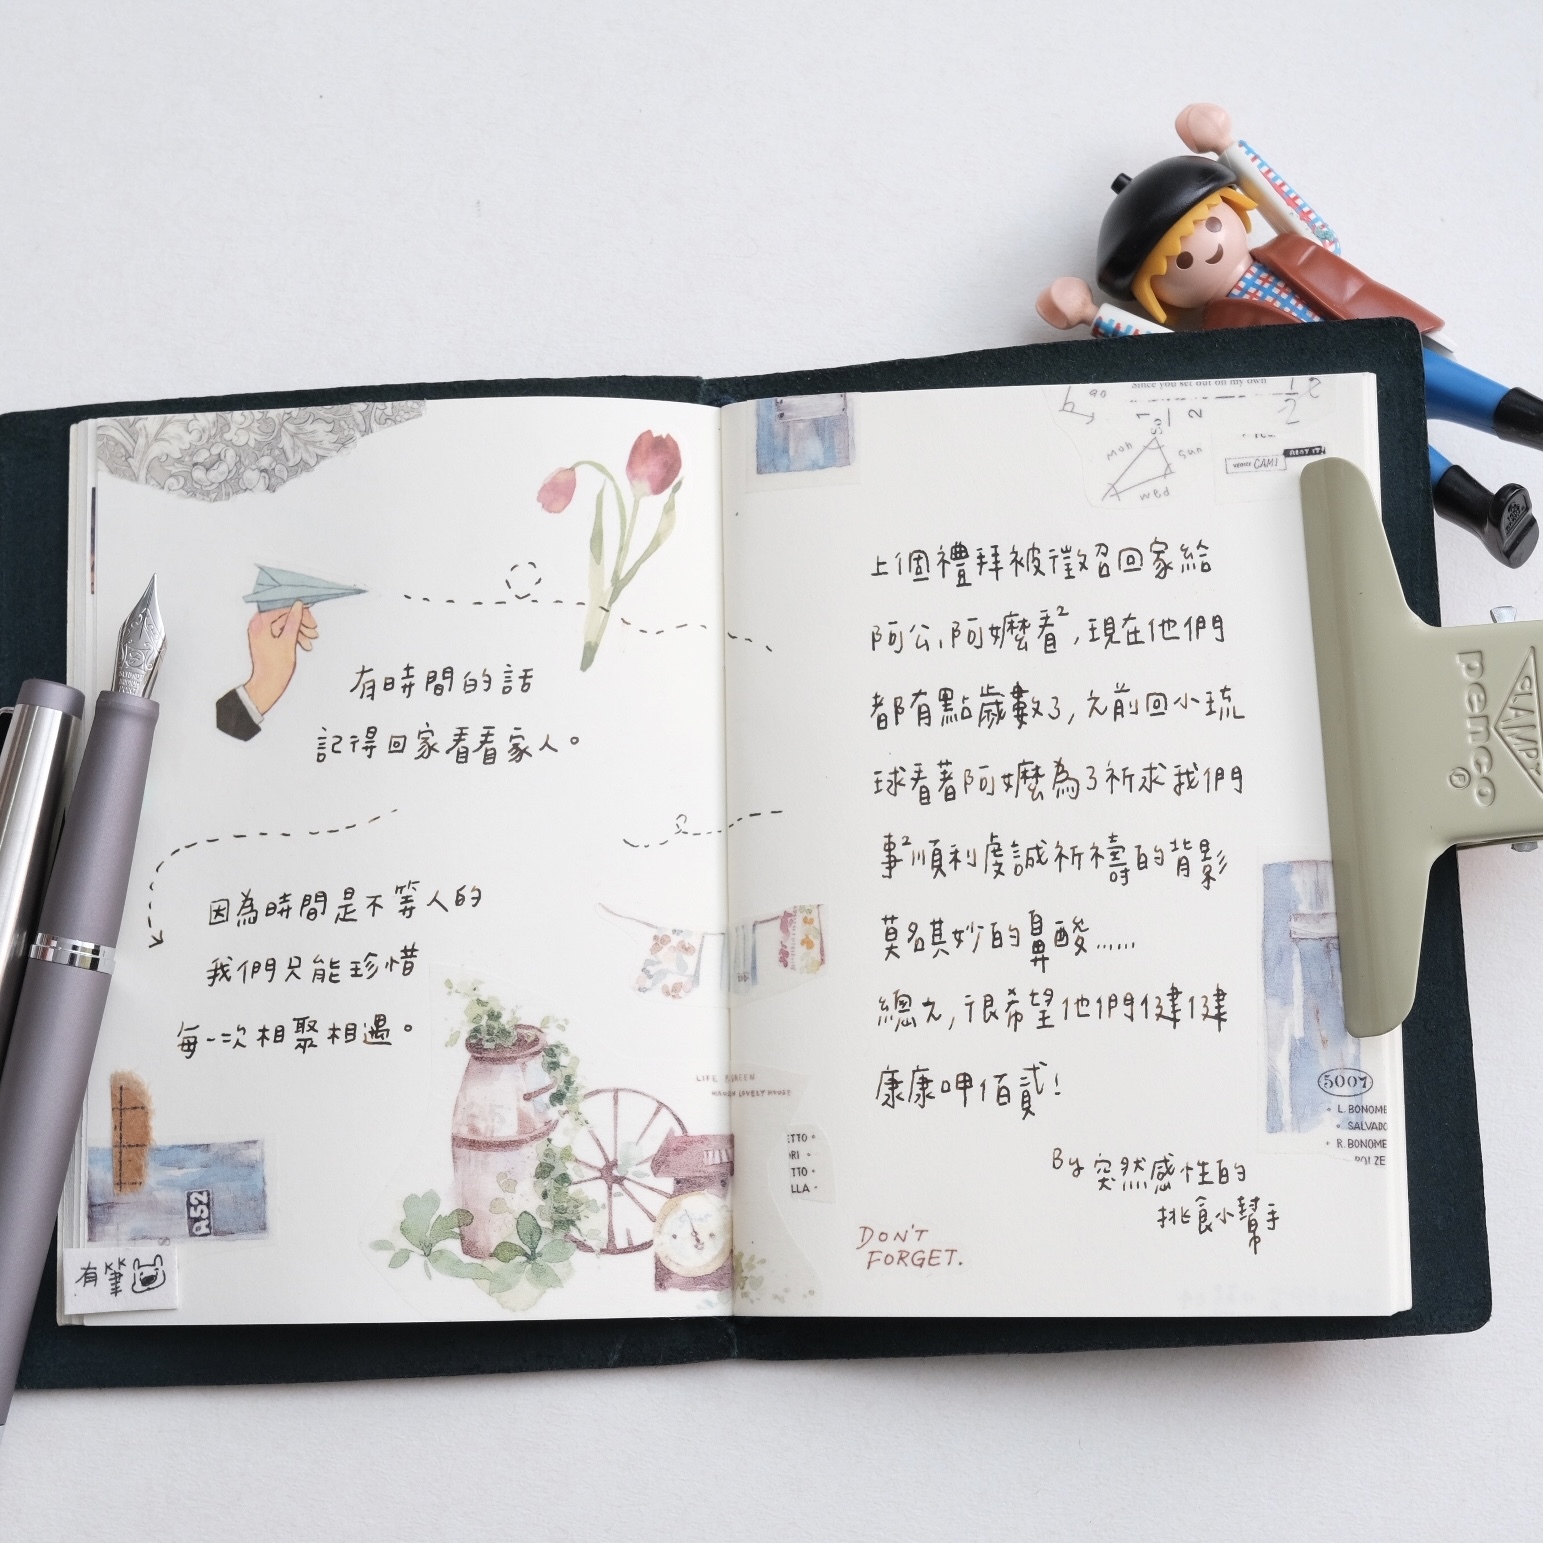 有時間的話
記得回家看看家人。
因為時間是不等人的
我們只能珍惜
每一次相聚相遇。
A52
有筆
LIFE
GREEN
LOVELY HOUSE
Since you set out on my own
90
1/2
1/2
Mon
Sun
wed
CAMI
上個禮拜被徵召回家給
阿公、阿嬤看²,現在他們
都有點歲數了,之前回小琉
球看著阿嬤為了祈求我們
事²順利虔誠祈禱的背影
莫名其妙的鼻酸......
總之,很希望他們健健
康康呷佰貳!
By 突然感性的
挑食小幫手
DON'T
FORGET.
5007
• L. BONOME
• SALVADO
• R. BONOME
ETTO •
ORI •
TTO •
LLA •
CLAMP
penco